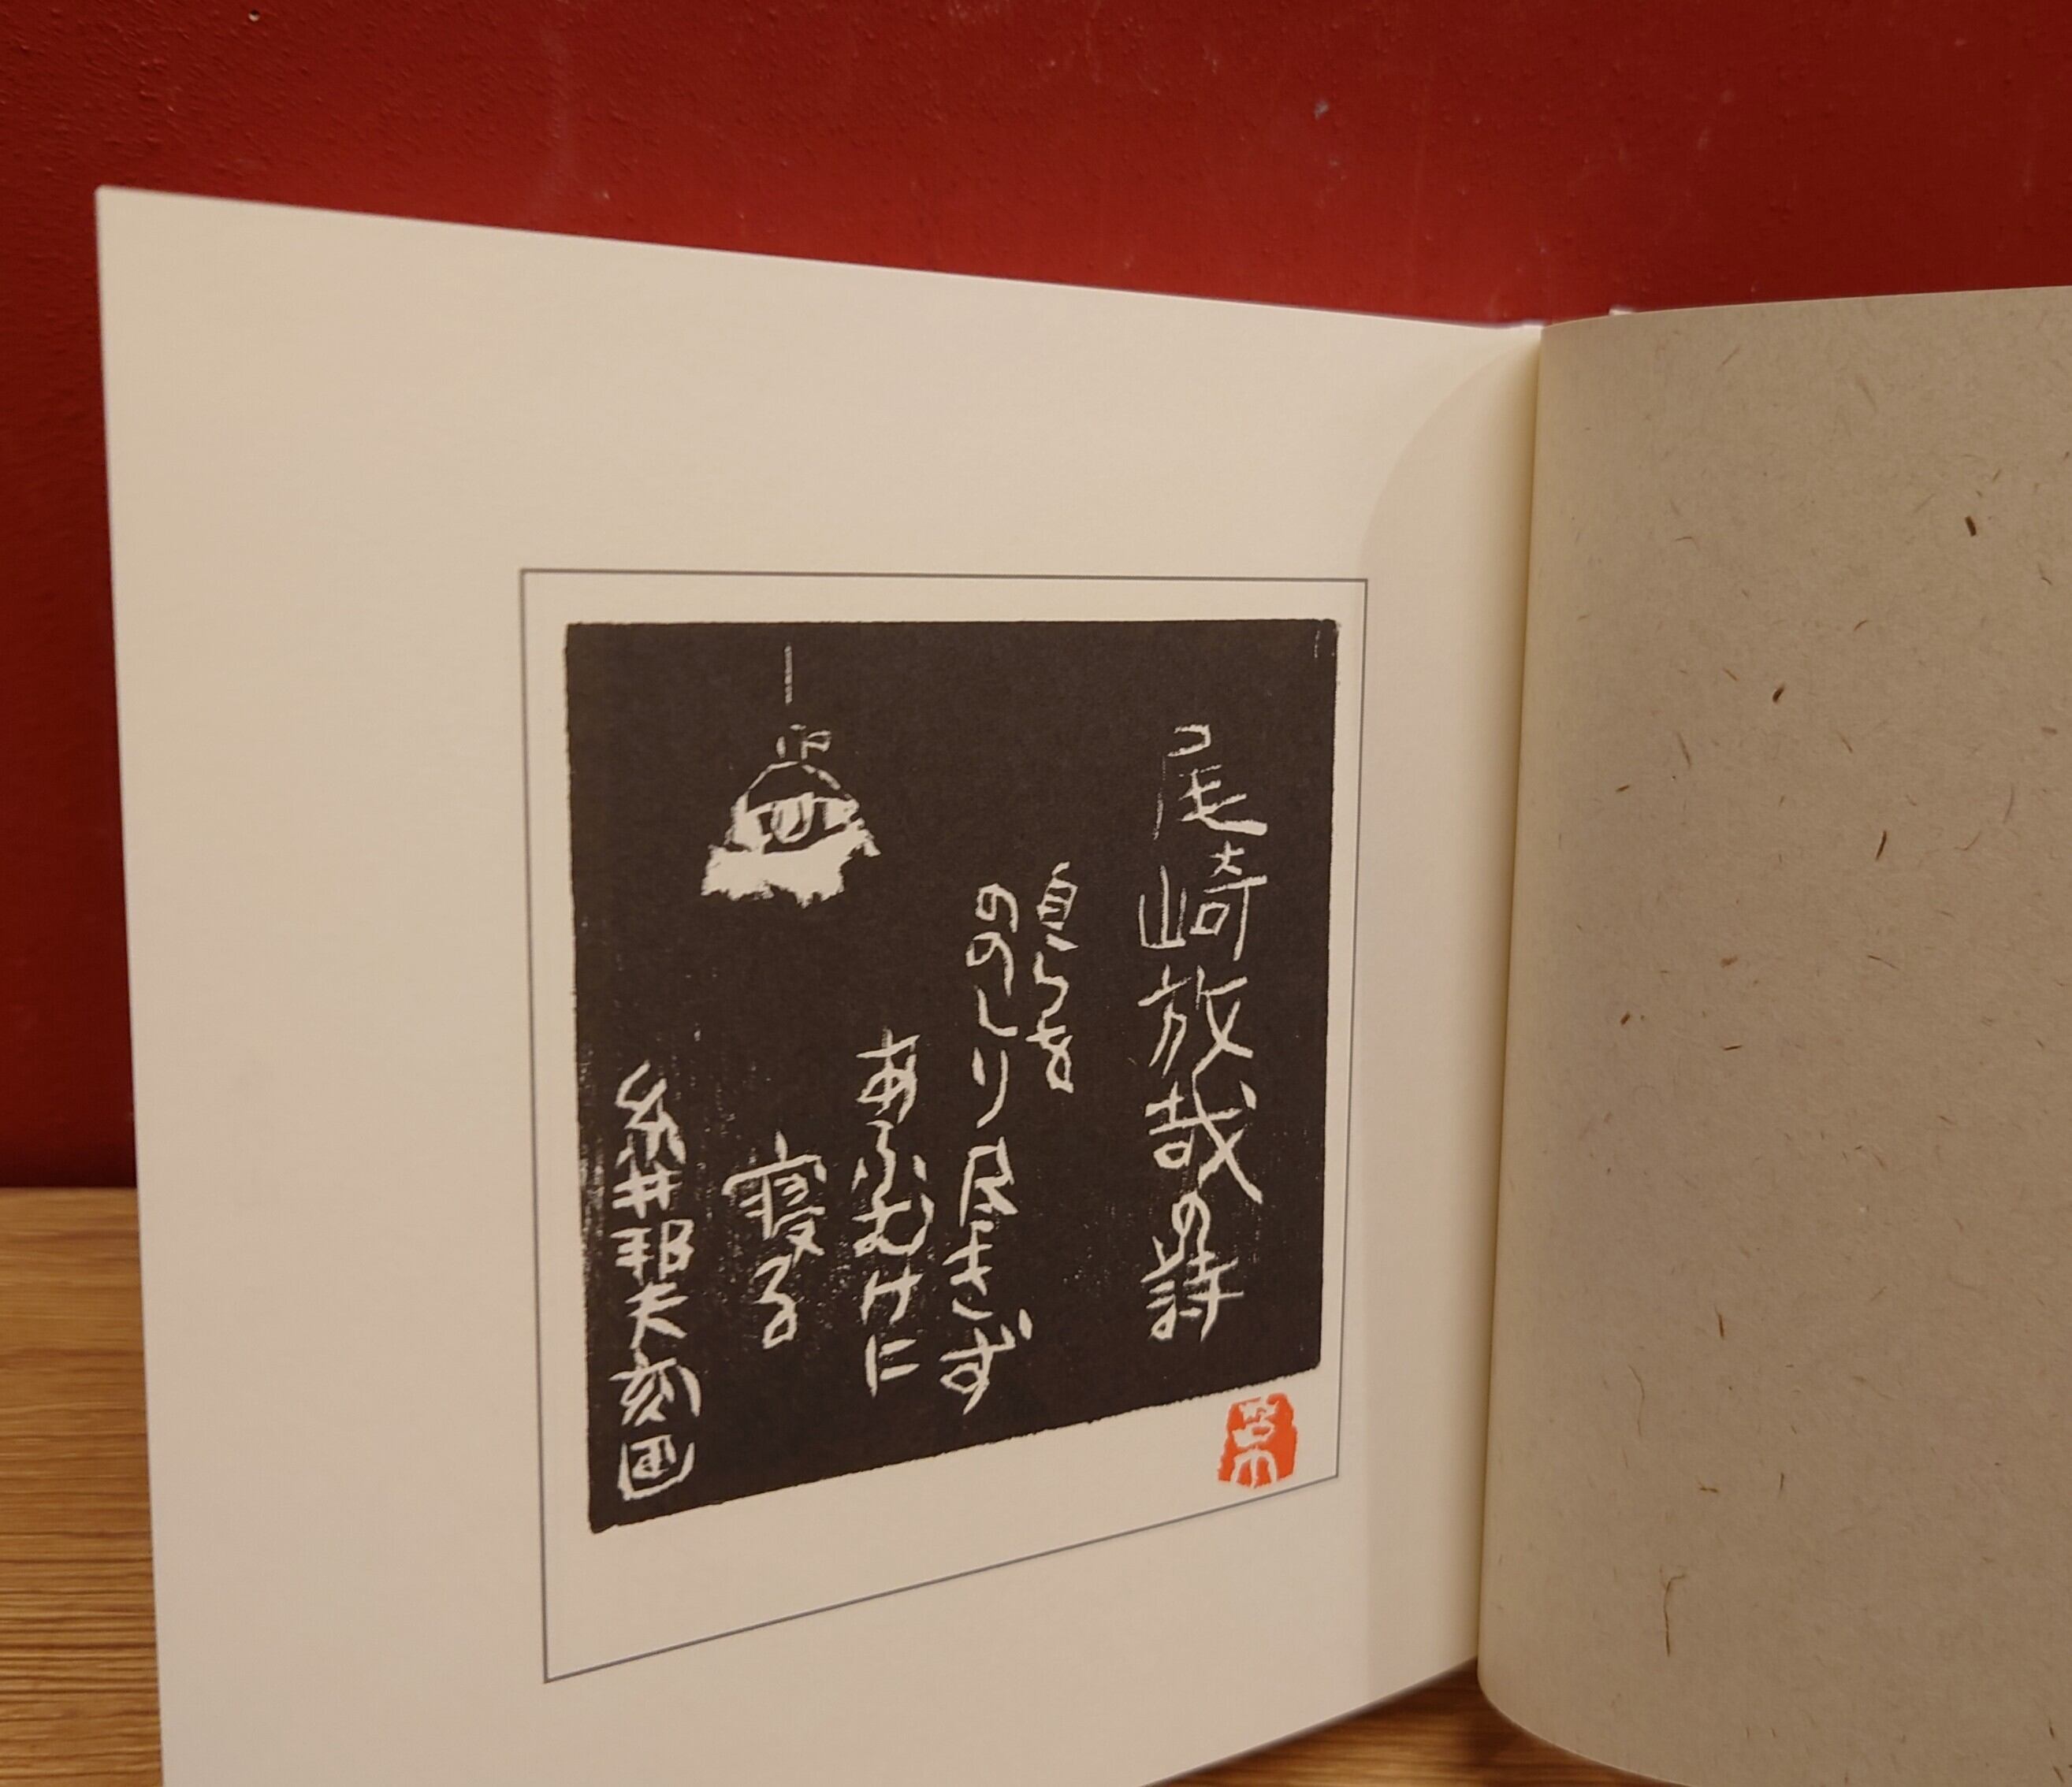 尾崎放哉の詩
自らを
ののしり尽きず
あふむけに
寝る
糸井邦夫刻画